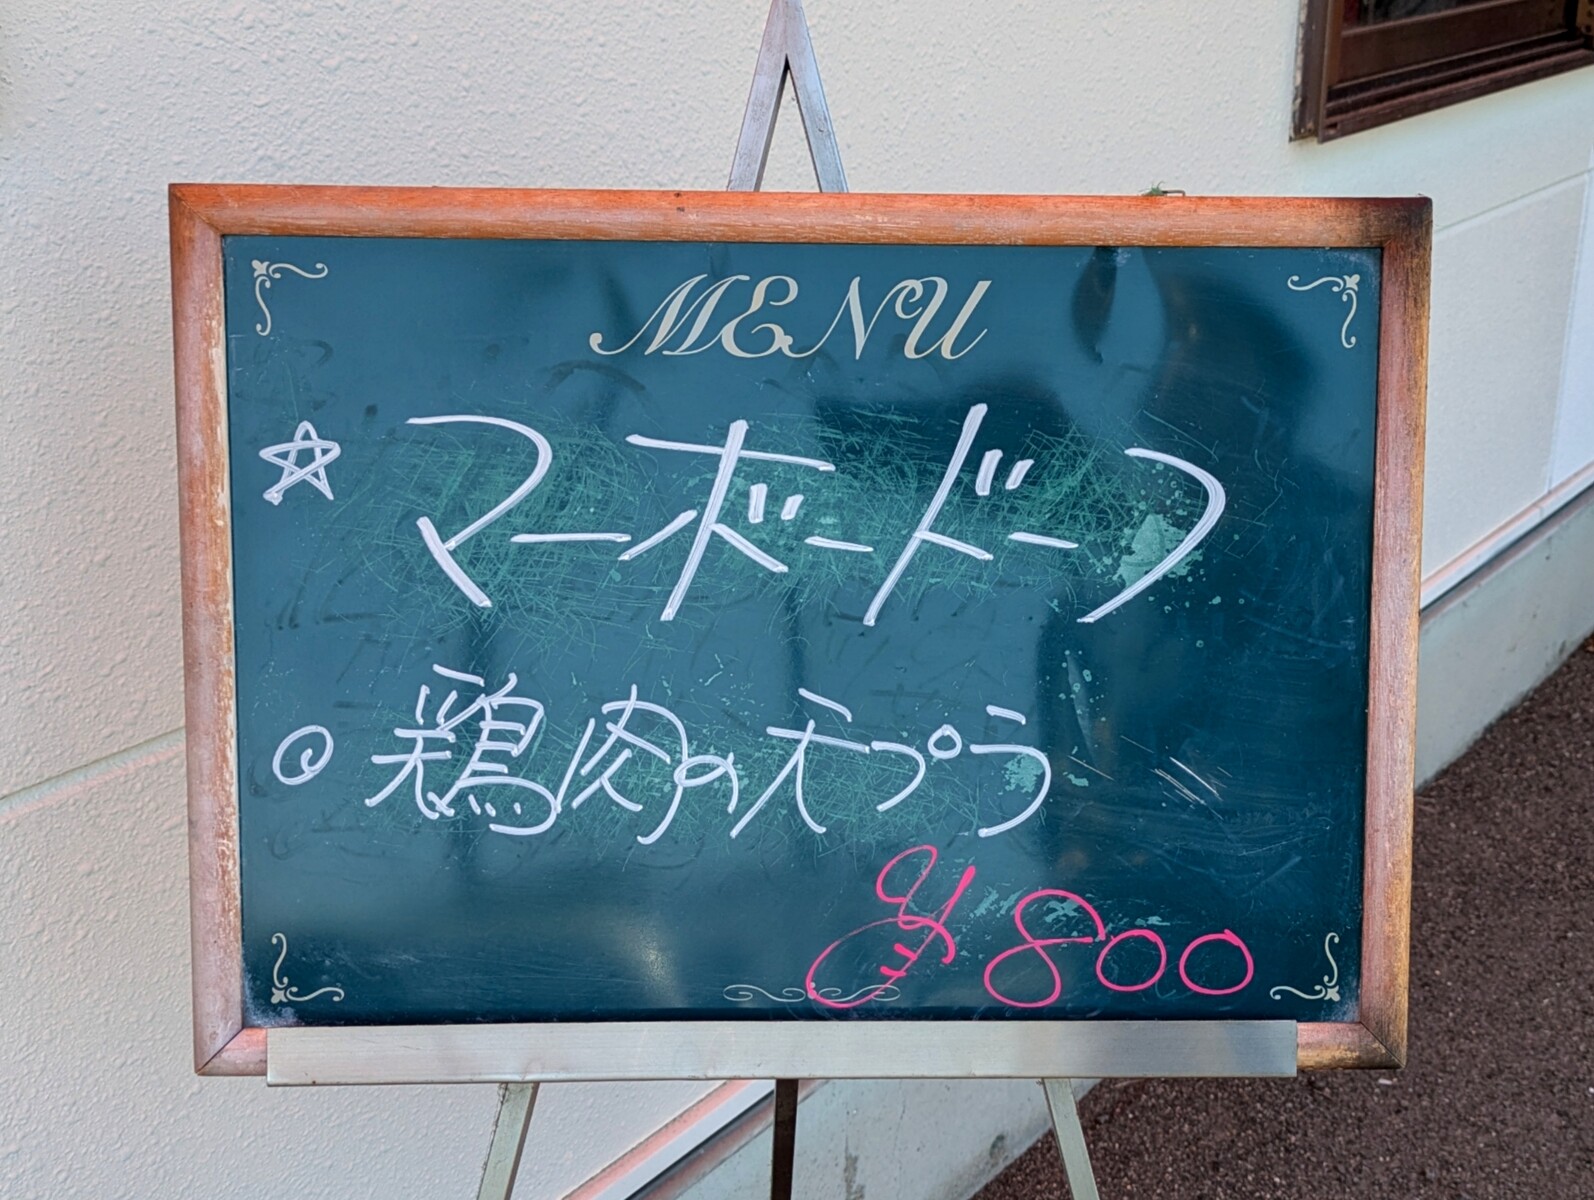 MENU
☆ マーボードーフ
◎ 鶏肉の天プラ
¥800